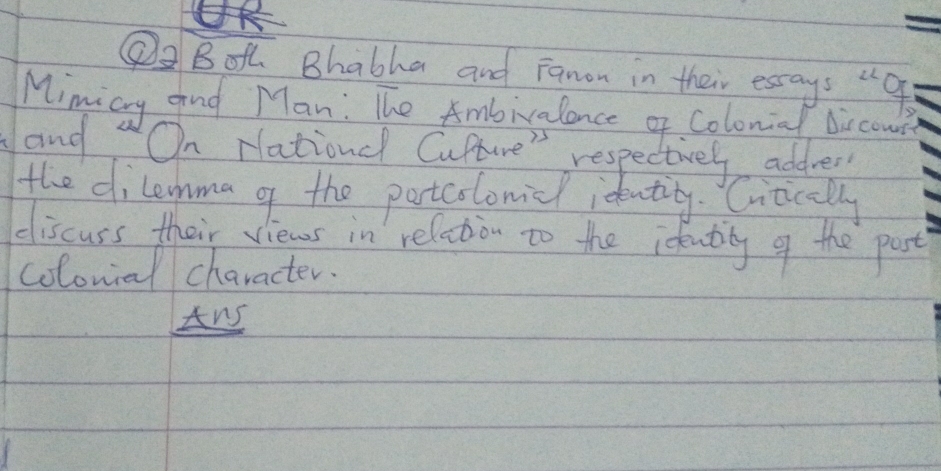 OR
Q2 Both Bhabha and Fanon in their essays "Of
Mimicry and Man: The Ambivalence of Colonial Discourse"
and "On National Culture" respectively address
the dilemma of the postcolonial identity. Critically
discuss their views in relation to the identity of the post
colonial character.
Ans